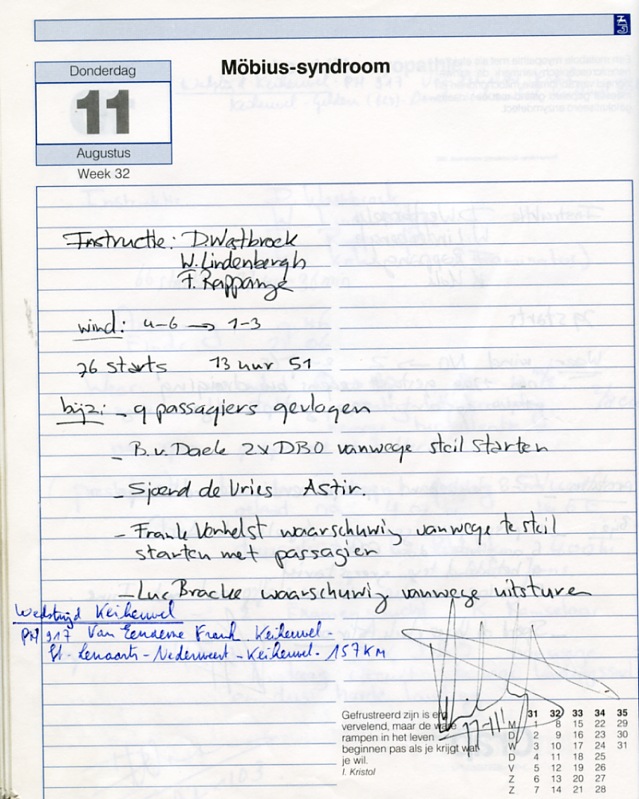 Möbius-syndroom
Donderdag
11
Augustus
Week 32
Instructie: D. Wastbroek
W. Lindenbergh
F. Rappange
wind: 4-6 → 1-3
76 starts 13 uur 51
bijz: - 9 passagiers gevlogen
- B. v. Daele 2x DBO vanwege steil starten
- Sjoerd de Vries Astir.
- Frank Vanhelst waarschuwig vanwege te steil
starten met passagier
- Luc Bracke waarschuwig vanwege uitsturen
Wedstrijd Keiheuvel
PH 917 Van Eendene Frank Keiheuvel -
St-Lenaarts - Nederweert - Keiheuvel - 157 KM
Gefrustreerd zijn is erg
vervelend, maar de ware
rampen in het leven
beginnen pas als je krijgt wat
je wil.
I. Kristol
31 32 33 34 35
M 1 8 15 22 29
D 2 9 16 23 30
W 3 10 17 24 31
D 4 11 18 25
V 5 12 19 26
Z 6 13 20 27
Z 7 14 21 28